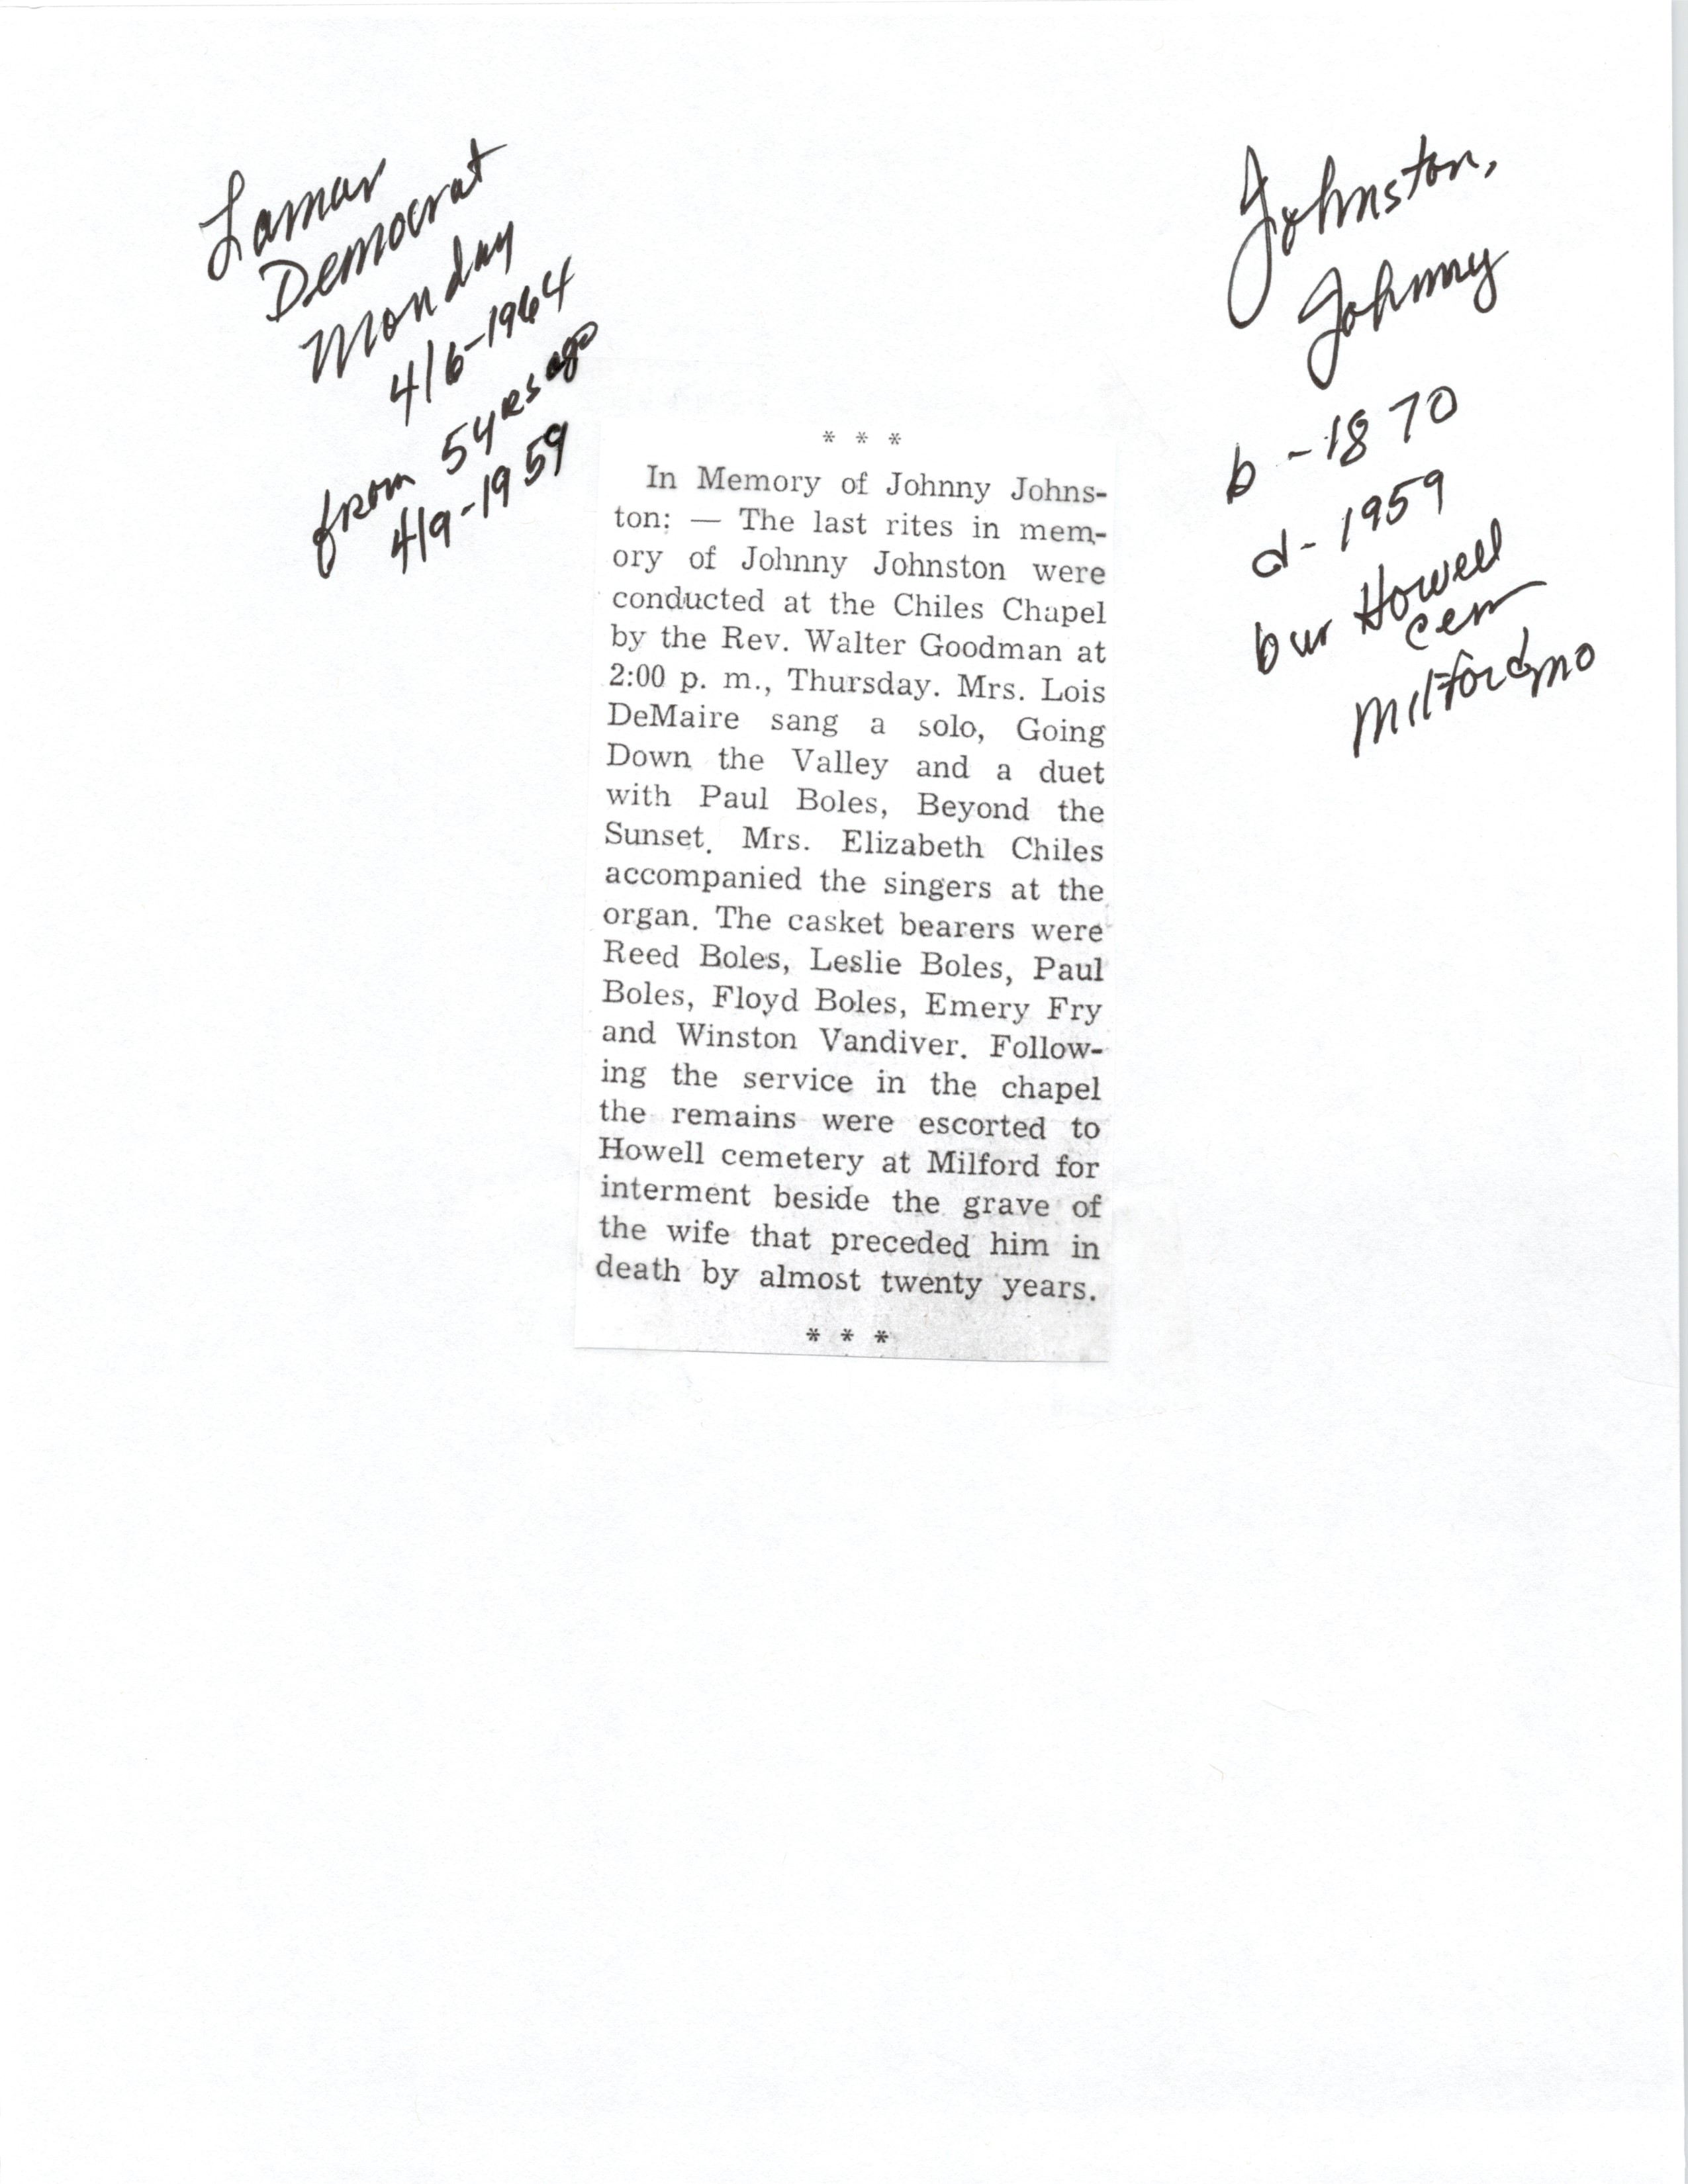 Lamar
Democrat
Monday
4/6-1964
from 5 yrs ago
4/9-1959
Johnston,
Johnny
b-1870
d-1959
bur Howell
Cem
Milford, mo
* * *
In Memory of Johnny Johns-
ton: — The last rites in mem-
ory of Johnny Johnston were
conducted at the Chiles Chapel
by the Rev. Walter Goodman at
2:00 p. m., Thursday. Mrs. Lois
DeMaire sang a solo, Going
Down the Valley and a duet
with Paul Boles, Beyond the
Sunset. Mrs. Elizabeth Chiles
accompanied the singers at the
organ. The casket bearers were
Reed Boles, Leslie Boles, Paul
Boles, Floyd Boles, Emery Fry
and Winston Vandiver. Follow-
ing the service in the chapel
the remains were escorted to
Howell cemetery at Milford for
interment beside the grave of
the wife that preceded him in
death by almost twenty years.
* * *